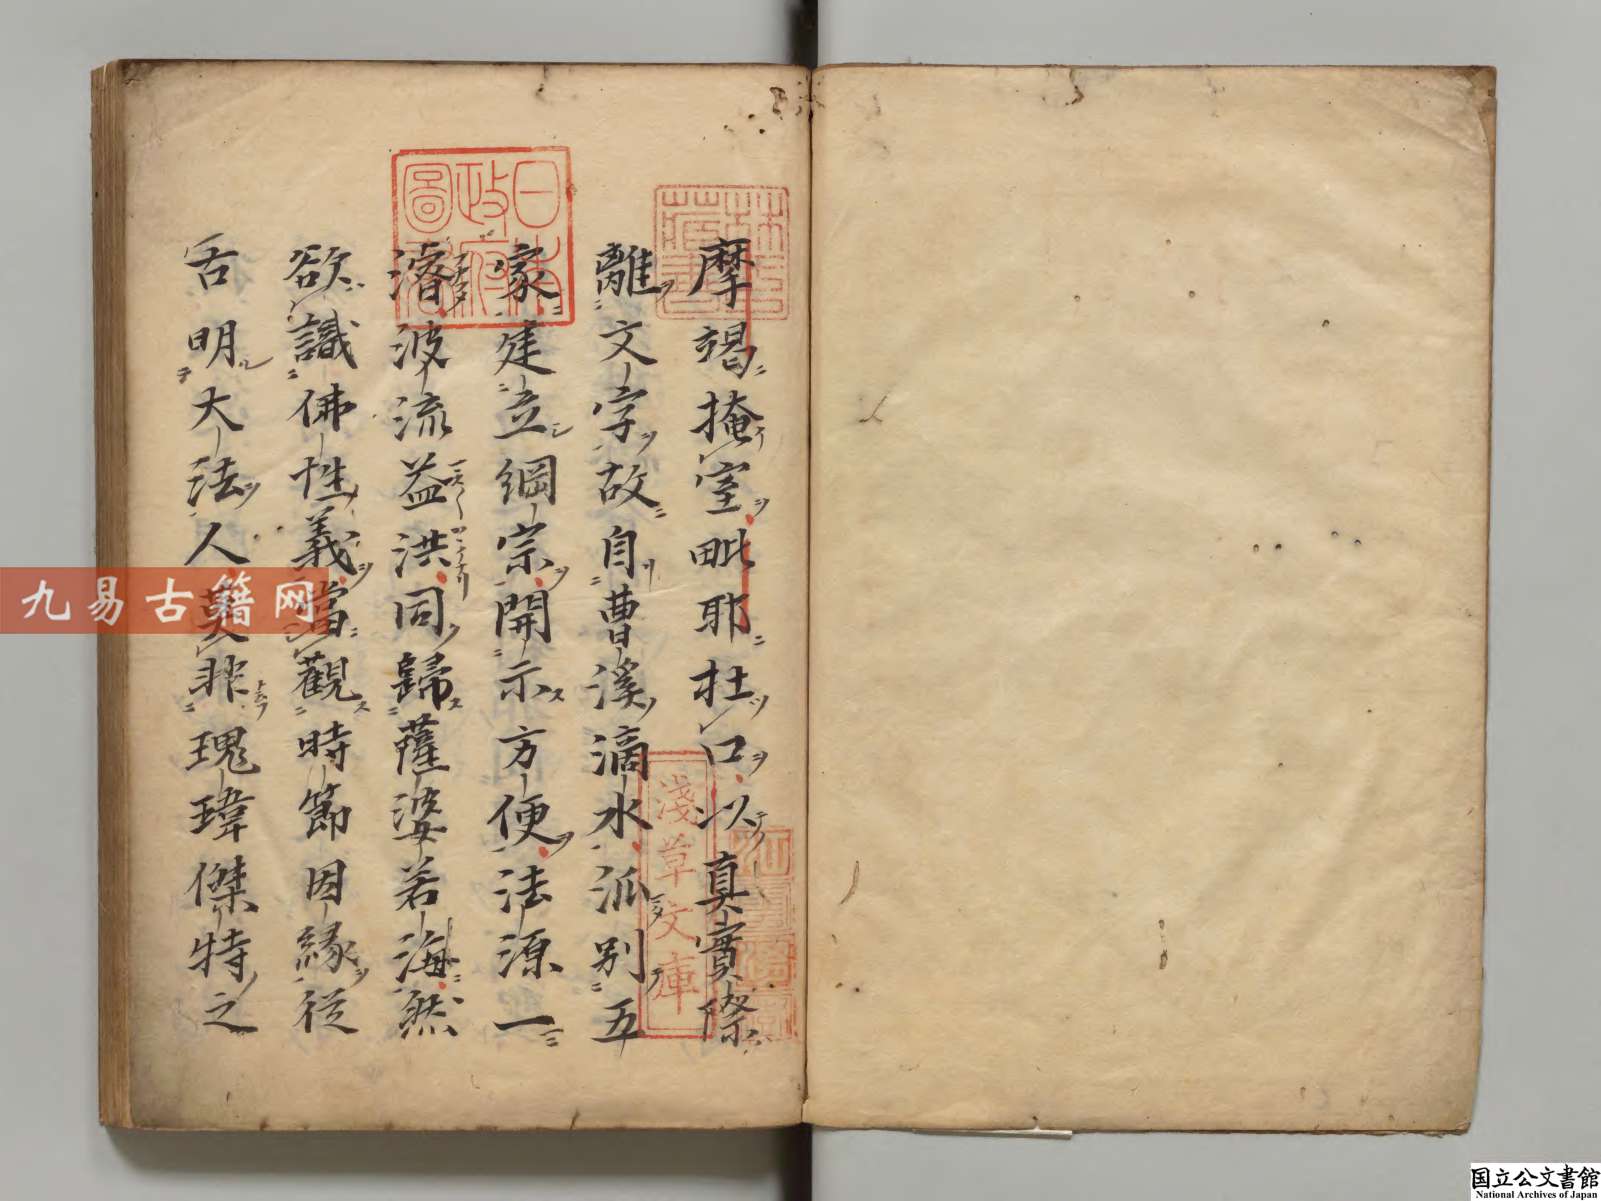 摩竭掩室毗耶杜口以真實際
離文字故自曹溪滴水派別五
家建立綱宗開示方便法源一
濬波流益洪同歸薩婆若海然
欲識佛性義當觀時節因緣從
古明大法人莫非瑰瑋傑特之
林氏藏書
日本政府圖書
淺草文庫
九易古籍网
国立公文書館
National Archives of Japan